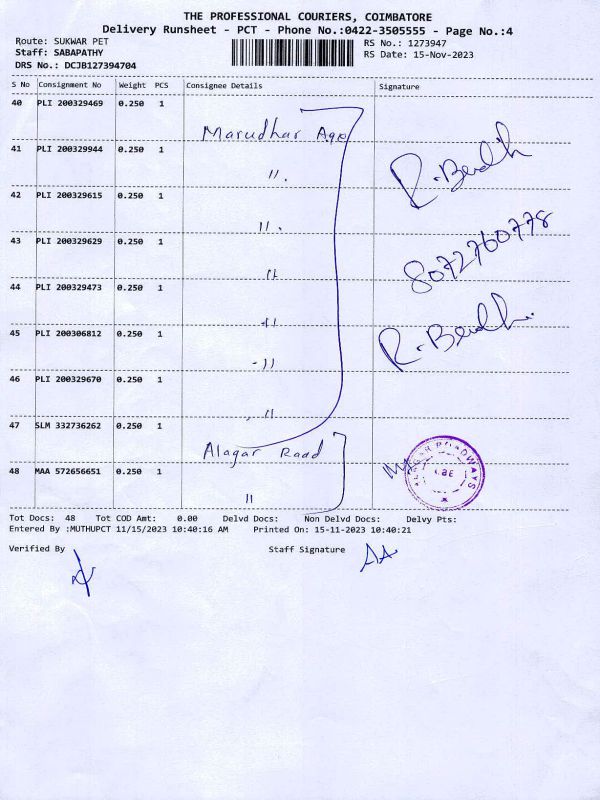 THE PROFESSIONAL COURIERS, COIMBATORE
Delivery Runsheet - PCT - Phone No.:0422-3505555 - Page No.:4
Route: SUKWAR PET RS No.: 1273947
Staff: SABAPATHY RS Date: 15-Nov-2023
DRS No.: DCJB127394704
S No Consignment No Weight PCS Consignee Details Signature
40 PLI 200329469 0.250 1 Marudhar Age
41 PLI 200329944 0.250 1 "
R.
42 PLI 200329615 0.250 1 "
43 PLI 200329629 0.250 1 "
8072760778
44 PLI 200329473 0.250 1 "
R.
45 PLI 200306812 0.250 1 "
46 PLI 200329670 0.250 1 "
47 SLM 332736262 0.250 1 Alagar Road
48 MAA 572656651 0.250 1 "
ALAGAR ROADWAYS
CBE
Tot Docs: 48 Tot COD Amt: 0.00 Delvd Docs: Non Delvd Docs: Delvy Pts:
Entered By :MUTHUPCT 11/15/2023 10:40:16 AM Printed On: 15-11-2023 10:40:21
Verified By Staff Signature